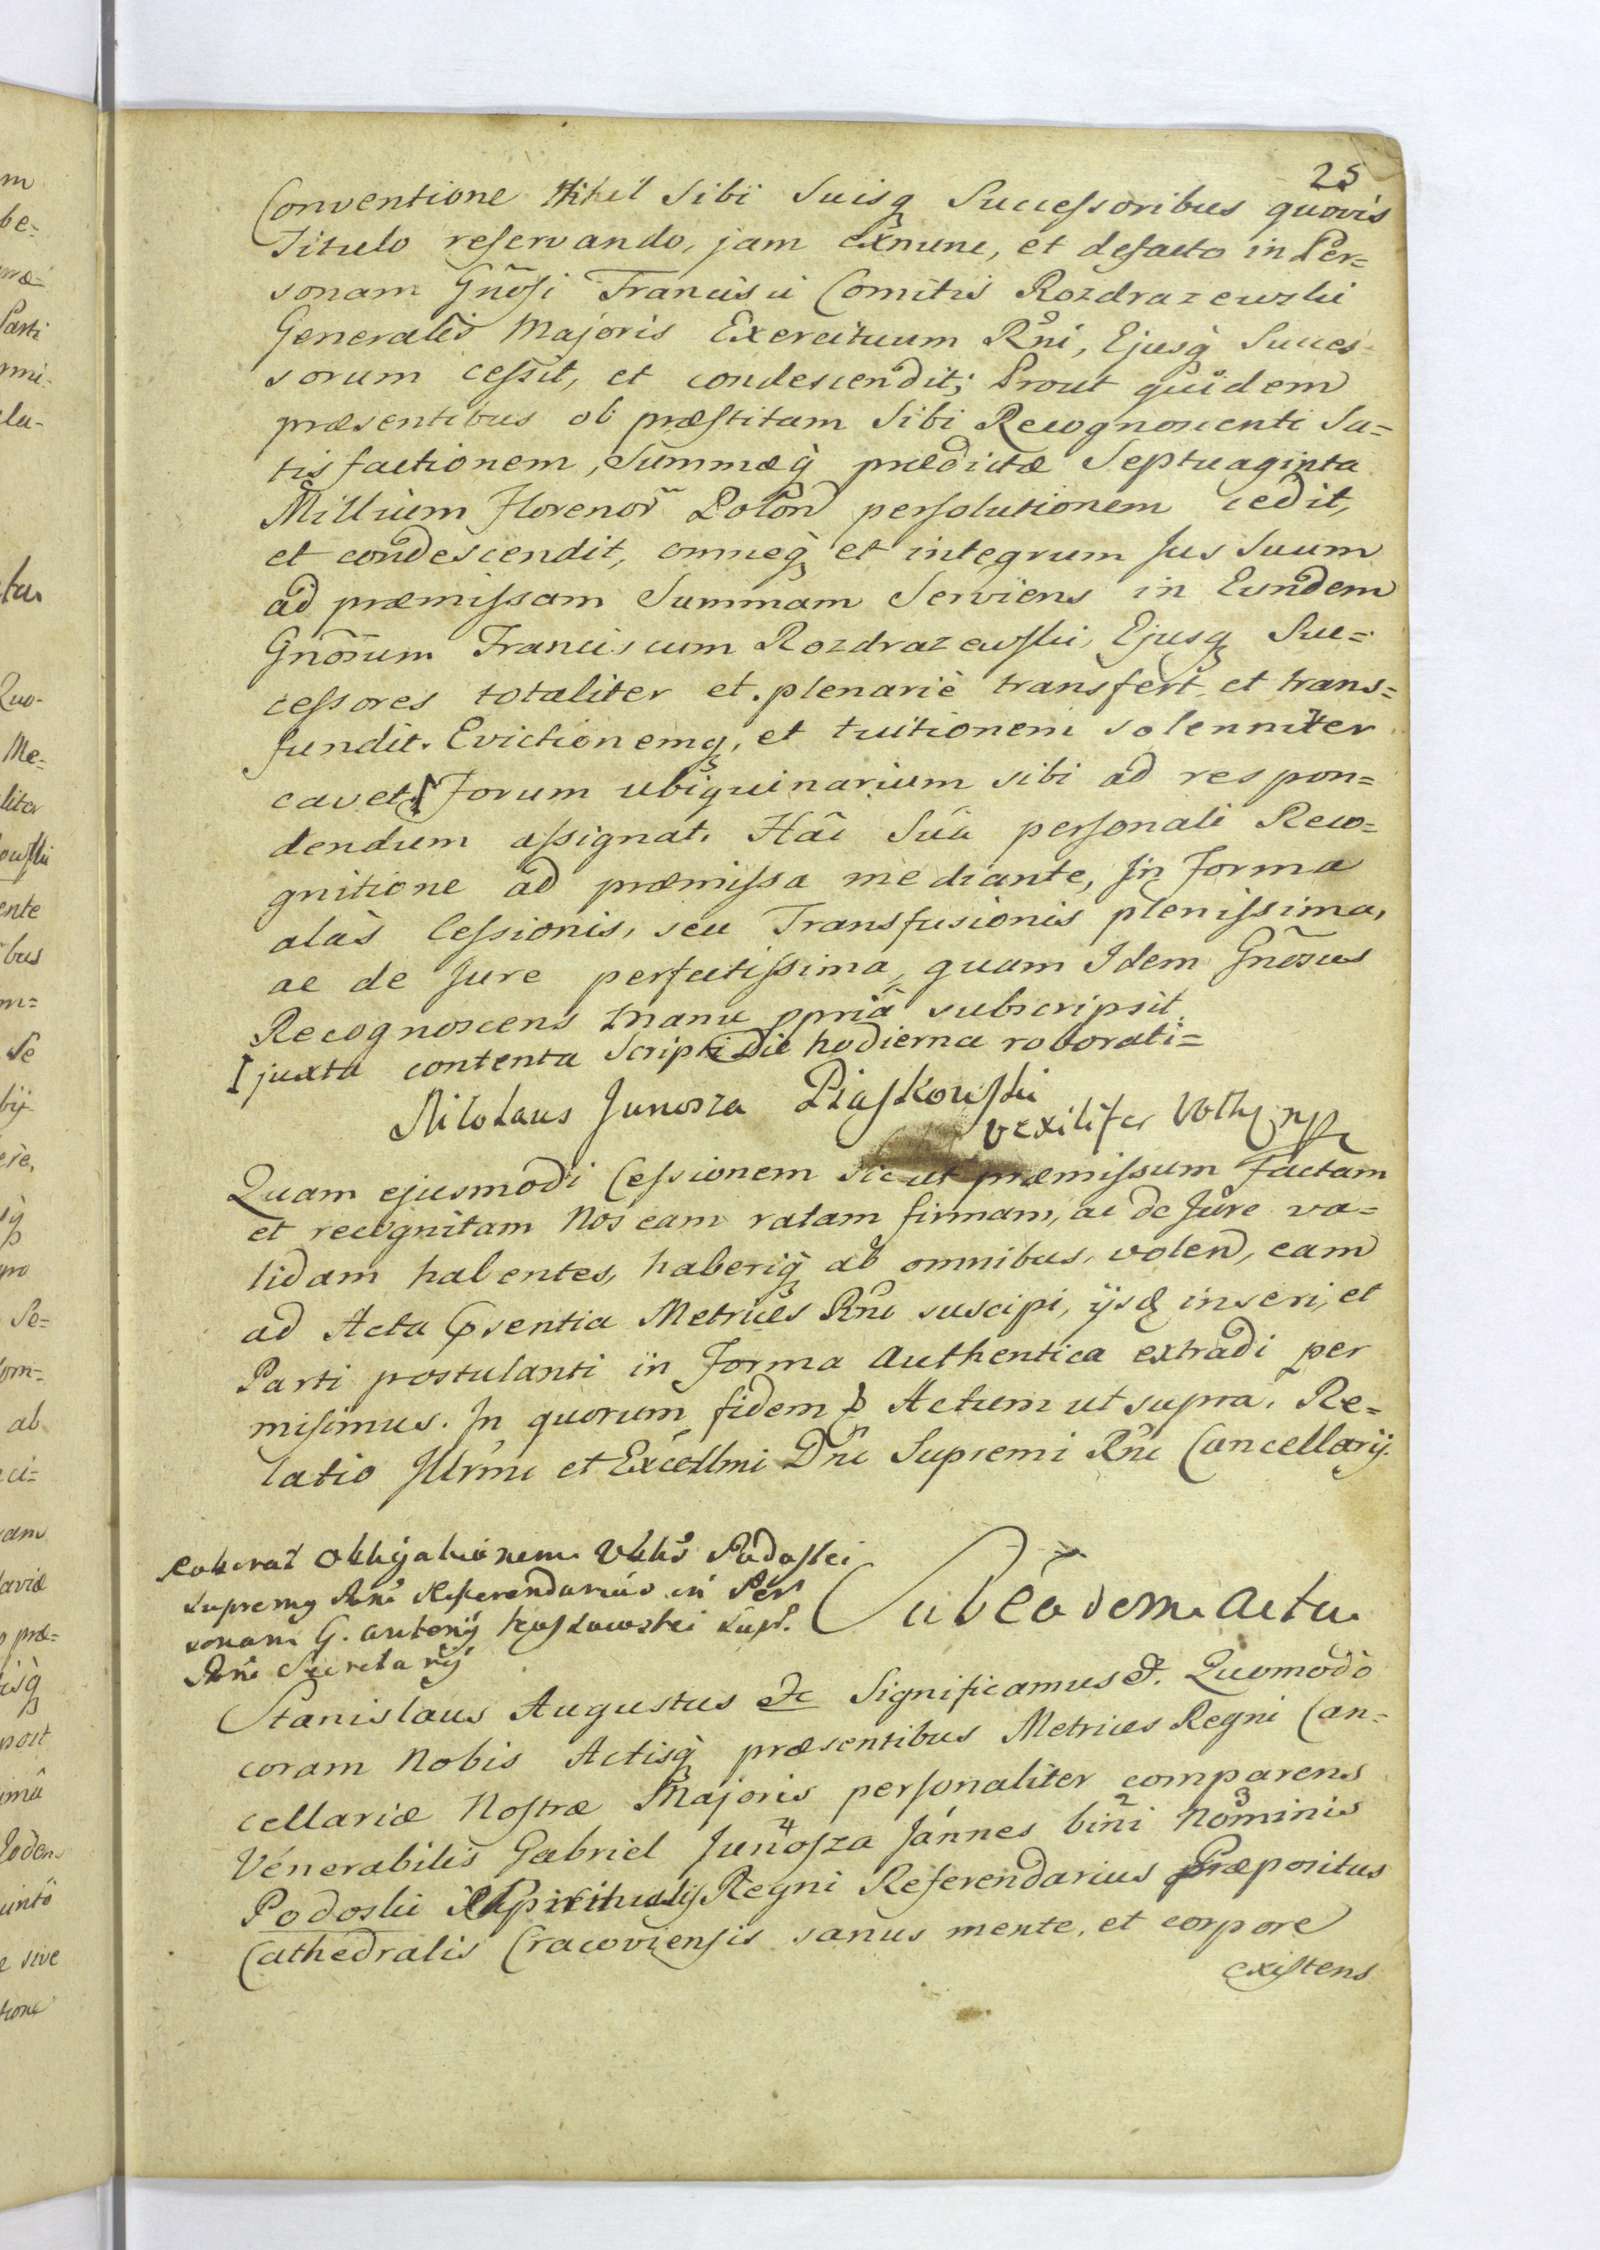 25
Conventione Nihil Sibi Suisq Successoribus quovis
Titulo reservando, jam exnunc, et defacto in Per=
sonam Gnosi Francisci Comitis Rozdrazewski
Generalis Majoris Exercituum Rni, Ejusq Succes=
sorum cessit, et condescendit; Prout quidem
præsentibus ob præstitam Sibi Recognoscenti Sa=
tisfactionem, Summæq prædictæ Septuaginta
Millium Florenor Polon persolutionem cedit,
et condescendit, omneq et integrum Jus Suum
ad præmissam Summam Serviens in Eundem
Gnosum Franciscum Rozdrazewski, Ejusq Suc=
cessores totaliter et plenariè transfert et trans=
fundit. Evictionemq, et tuitionem solenniter
cavet, Forum ubiquinarium sibi ad respon=
dendum assignat. Hâc Suâ personali Reco=
gnitione ad præmissa mediante, In Forma
alàs Cessionis, seu Transfusionis plenissima,
ac de Jure perfectissima, quam Idem Gnosus
Recognoscens manu ppriâ subscripsit.
juxta contenta Scripti Die hodierna roborati=
Nikolaus Junosza Piaskowski
vexilifer Volhy mp
Quam ejusmodi Cessionem sic ut præmissum Factam
et recognitam Nos eam ratam firmam, ac de Jure va=
lidam habentes, haberiq ab omnibus volen, eam
ad Acta psentia Metrices Rni suscipi, ijsq inseri, et
Parti postulanti in Forma Authentica extradi per
misimus. In quorum fidem Actum ut supra. Re=
latio Illrmi et Excellmi Dni Supremi Rni Cancellarij.
roborat Obligationem Vblis Podoski
supremy Rni Referendarius in Per
sonam G. antonij
Rni Secretarij
Sub eâdem acta
Stanislaus Augustus &c Significamus &. Quomodò
coram Nobis Actisq præsentibus Metrices Regni Can=
cellariæ Nostræ Majoris personaliter comparens
2 3
Venerabilis Gabriel Junosza Jánnes bini Nominis
4
Podoski Spiritualis Regni Referendarius Præpositus
Cathedralis Cracoviensis sanus mente, et corpore
existens